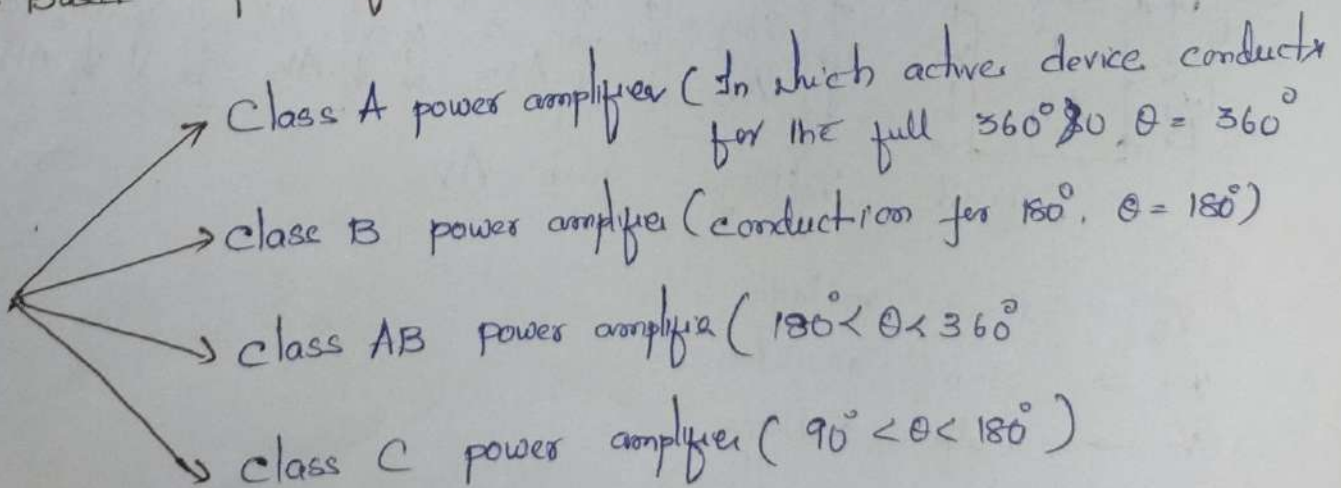 Class A power amplifier ( In which active device conducts
for the full 360° so, θ = 360°
class B power amplifier (conduction for 180°. θ = 180°)
class AB power amplifier ( 180° < θ < 360°
class C power amplifier ( 90° < θ < 180° )